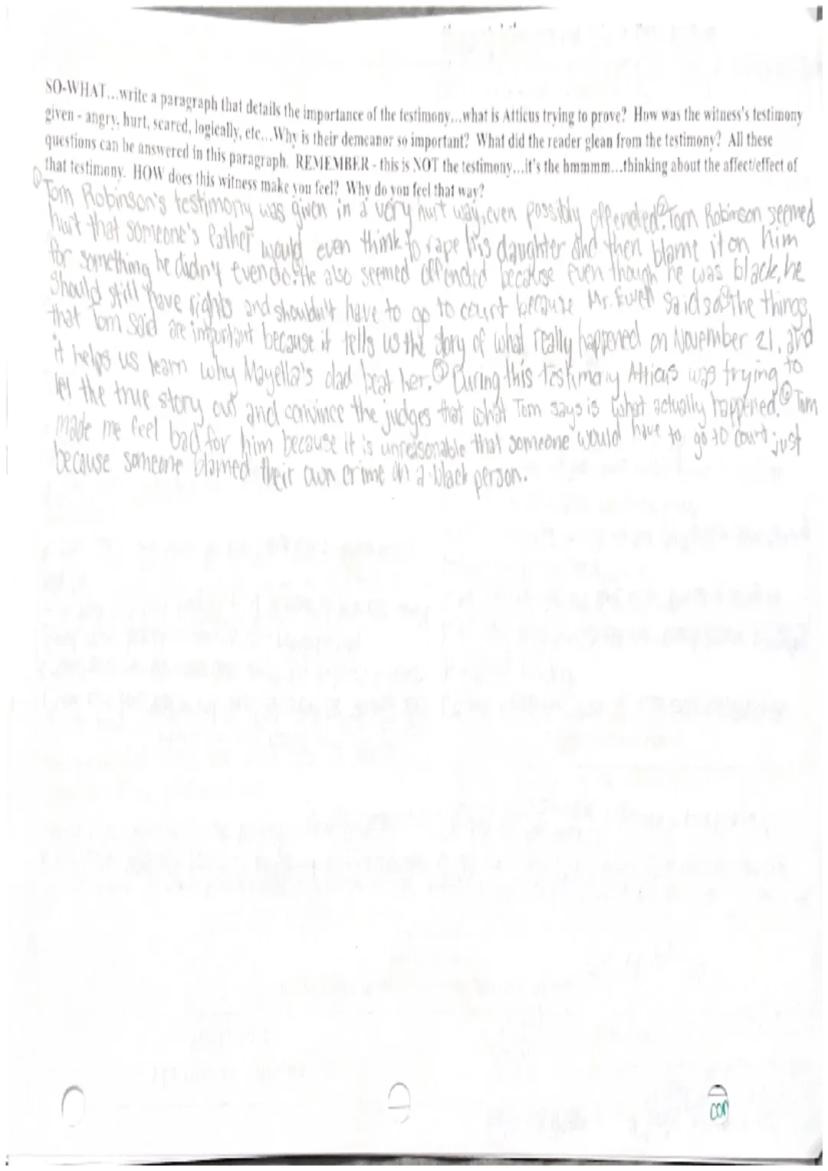 SO-WHAT...write a paragraph that details the importance of the testimony...what is Atticus trying to prove? How was the witness's testimony
given - angry, hurt, scared, logically, etc...Why is their demeanor so important? What did the reader glean from the testimony? All these
questions can be answered in this paragraph. REMEMBER - this is NOT the testimony...it's the hmmmm...thinking about the affect/effect of
that testimony. HOW does this witness make you feel? Why do you feel that way?
Tom Robinson's testimony was given in a very hurt way, even possibly offended. Tom Robinson seemed
hurt that someone's father would even think to rape his daughter and then blame it on him
for something he didn't even do. He also seemed offended because even though he was black, he
should still have rights and shouldn't have to go to court because Mr. Ewell said so. The things
that Tom said are important because it tells us the story of what really happened on November 21, and
it helps us learn why Mayella's dad beat her. During this testimony Atticus was trying to
let the true story out and convince the judges that what Tom says is what actually happened. Tom
made me feel bad for him because it is unreasonable that someone would have to go to court just
because someone blamed their own crime on a black person.
con